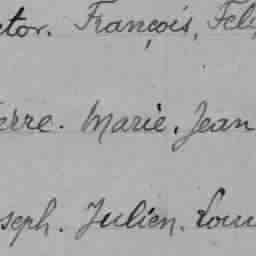 ctor. François, Fel
erre. Marie, Jean
seph. Julien. Lou